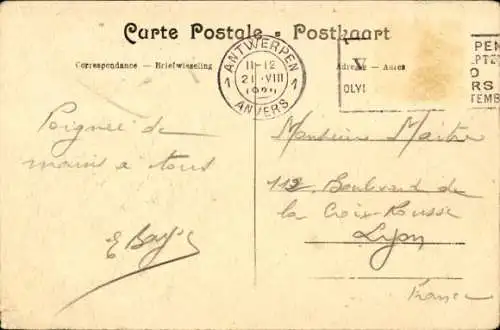 Carte Postale - Postkaart
Correspondance — Briefwisseling
Adresse — Adres
1 ANTWERPEN 1
11-12
21 VIII
ANVERS
V
OLYI
PEN
O
RS
TEMB
Poignée de
mains a tous
E
Monsieur Maitre
112. Boulevard de
la Croix-Rousse
Lyon
France